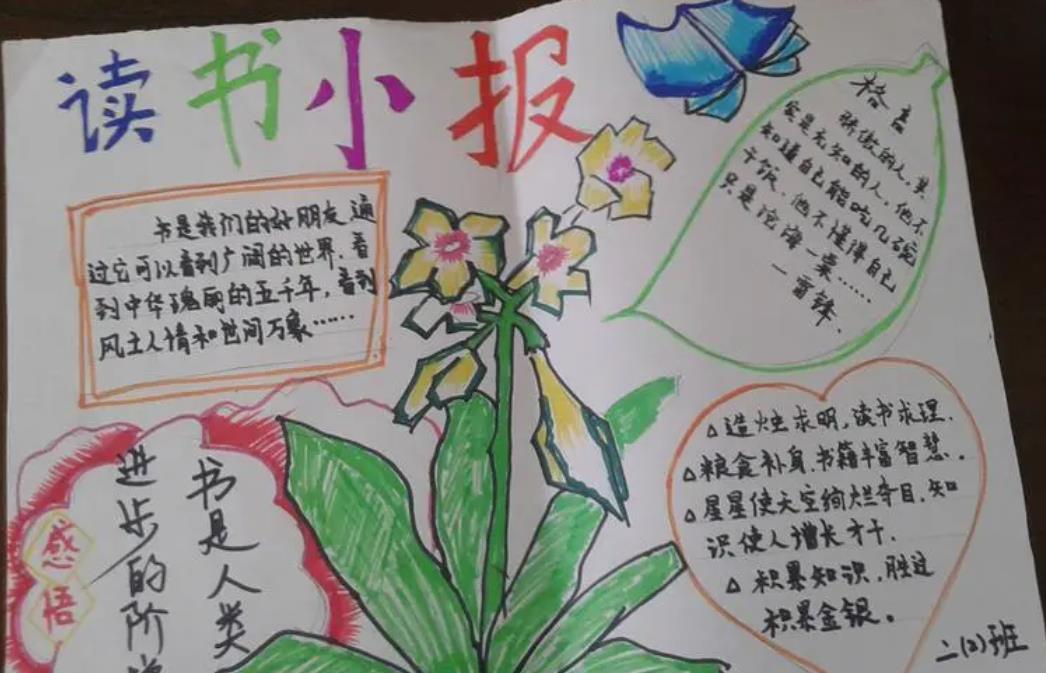 读书小报
书是我们的好朋友通
过它可以看到广阔的世界.看
到中华瑰丽的五千年,看到
风土人情和世间万象……
格言
骄傲的人,其
实是无知的人,他不
知道自己能吃几碗
干饭,他不懂得自己
只是沧海一粟……
—雷锋.
感悟
书是人类
进步的阶
△造烛求明,读书求理.
△粮食补身.书籍丰富智慧.
△星星使天空绚烂夺目.知
识使人增长才干.
△积累知识.胜过
积累金银。
二(2)班